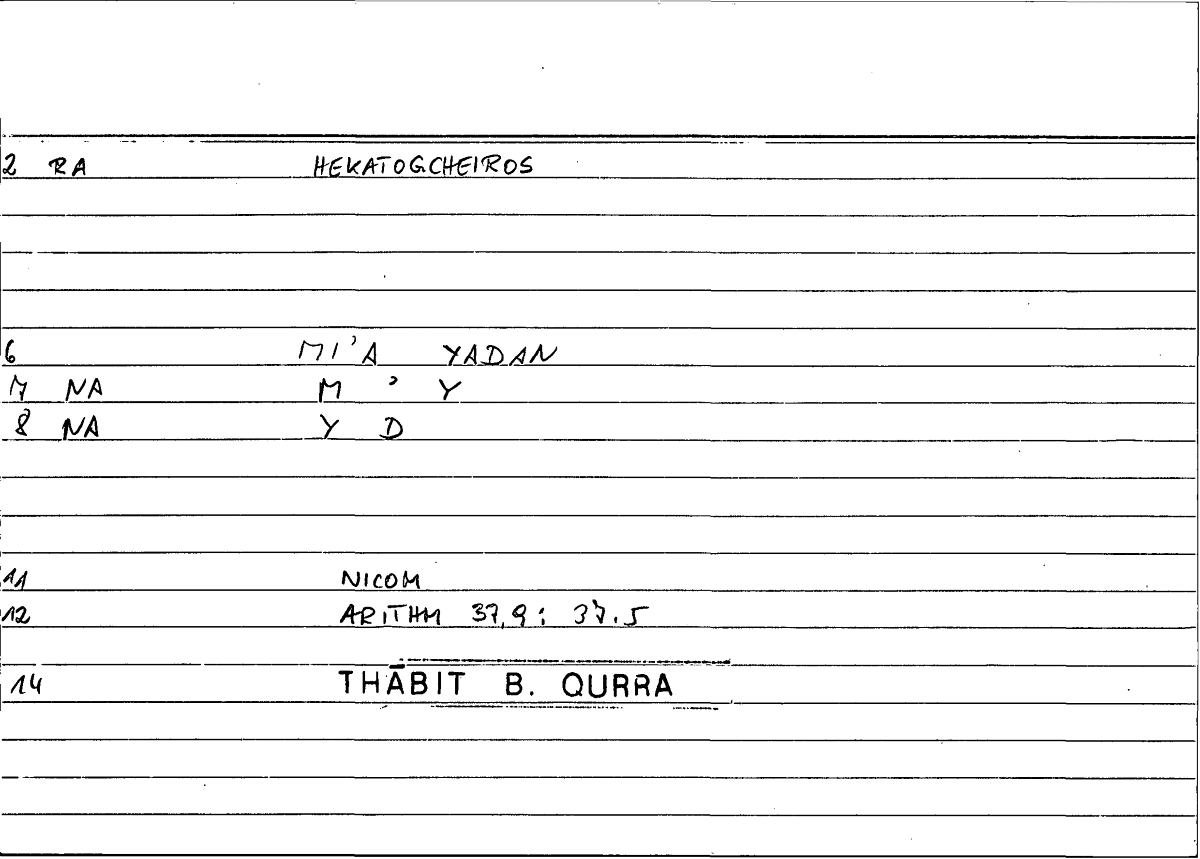 2 RA HEKATOGCHEIROS
6 MI'A YADAN
7 NA M ' Y
8 NA Y D
11 NICOM
12 ARITHM 37,9 : 37.5
14 THĀBIT B. QURRA